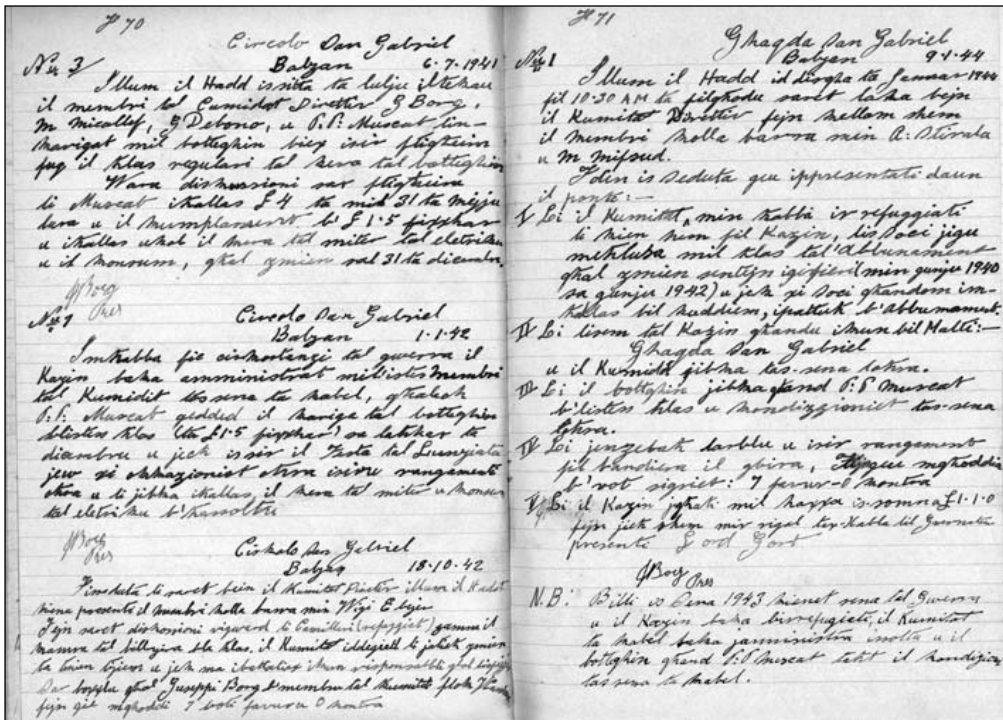 № 70
Circolo San Gabriel
Balzan 6-7-1941
No 3/
Illum il Hadd issitta ta lulju iltehau
il membri tal Cumidot Direttiv G Borg,
M Micallef, G Debono, u P.P. Muscat tin-
navigat mil botteghin biex isir ftigheim
fuq il klas regulari tal nera tal botteghin
Wara diskussioni sar ftigheim
li Muscat ikallas £ 4 ta mid 31 ta Mejju
lura u il £1.5 fixxhar
u ikallas ukol il nera tal miter tal eletriku
u il konsum, ghal zmien sal 31 ta dicembru.
JBorg
Pres
No 1
Circolo San Gabriel
Balzan 1-1-42
Imkabba fic cirkostanzi tal gwerra il
Kazin baka amministrat mill istes membri
tal Kumidit tes sena ta kabel, ghalhek
P.P. Muscat gedded il tal botteghin
blistess klas (ta £1.5 fixxhar) sa lahhar ta
dicembru u jekk issir il Festa tal Lunzjata
jew xi okkazjoniet ohra isiru rangamenti
ohra u li jibka ikallas, il nera tal miter u konsum
tal eletriku b'kassoltu
JBorg
Pres
Cirkolo San Gabriel
Balzan 18-10-42
Finseduta li saret bein il Kumitat Direttiv illum il Hadd
kienu presenti il membri kolla barra min Wigi
Fejn saret diskonsioni rigward li Camilleri (refuggiet) gamma il
kamra tal billejra bla klas, il Kumitat iddegieda li jatieh zmien
ta tmien tijiem u jekk ma ibattalix ikun responsabbli ghal
Sar ghal Guseppi Borg membru tal Kumitat flok
fejn gie mghoddi 7 voti favur u 0 kontra
№ 71
Ghaqda San Gabriel
Balzan 9-1-44
No 1
Illum il Hadd id disgha ta Januar 1944
fil 10-30 AM ta filghodu saret laka bejn
il Kumitat Direttiv fejn kellom shem
il membri kolla barra min A. Stivala
u M Mifsud.
F'din is Seduta gew ippresentati daun
il ponti:—
I Li il Kumitat, min kabbi ir refuggiati
li kien hem fil Kazin, lis Soci jigu
mehluba mil klas tal'Abbunament
ghal zmien sentejn igifieri (min gunju 1940
sa gunju 1942) u jekk xi Soci ghandom im-
kallas bil kuddiem, ipattih b'abbunament.
II Li lisem tal Kazin ghandu ikun bil Malti:—
Ghaqda San Gabriel
u il Kumidot jibka tas-sena lohra.
III Li il botteghin jibka ghand P.P Muscat
b'listess klas u kondizzioniet tas-sena
lohra.
IV Li jenzebah larblu u isir rangament
fil bandiera il gbira, mghoddi
b'vot sigriet: 7 favur-0 kontra
V Li il Kazin jghati mil kaxxa is-somma £1-1-0
fejn jieh shem mir rigal tax-Xabla lil Guvernatur
presenti Lord Gort
JBorg
Pres
N.B: Billi is Sena 1943 kienet sena tal Gwerra
u il Kazin baka birrefugiati, il Kumitat
ta kabel baka jamministra kollox u il
botteghin ghand P.P Muscat taht il kondizjoni
tas sena ta kabel.